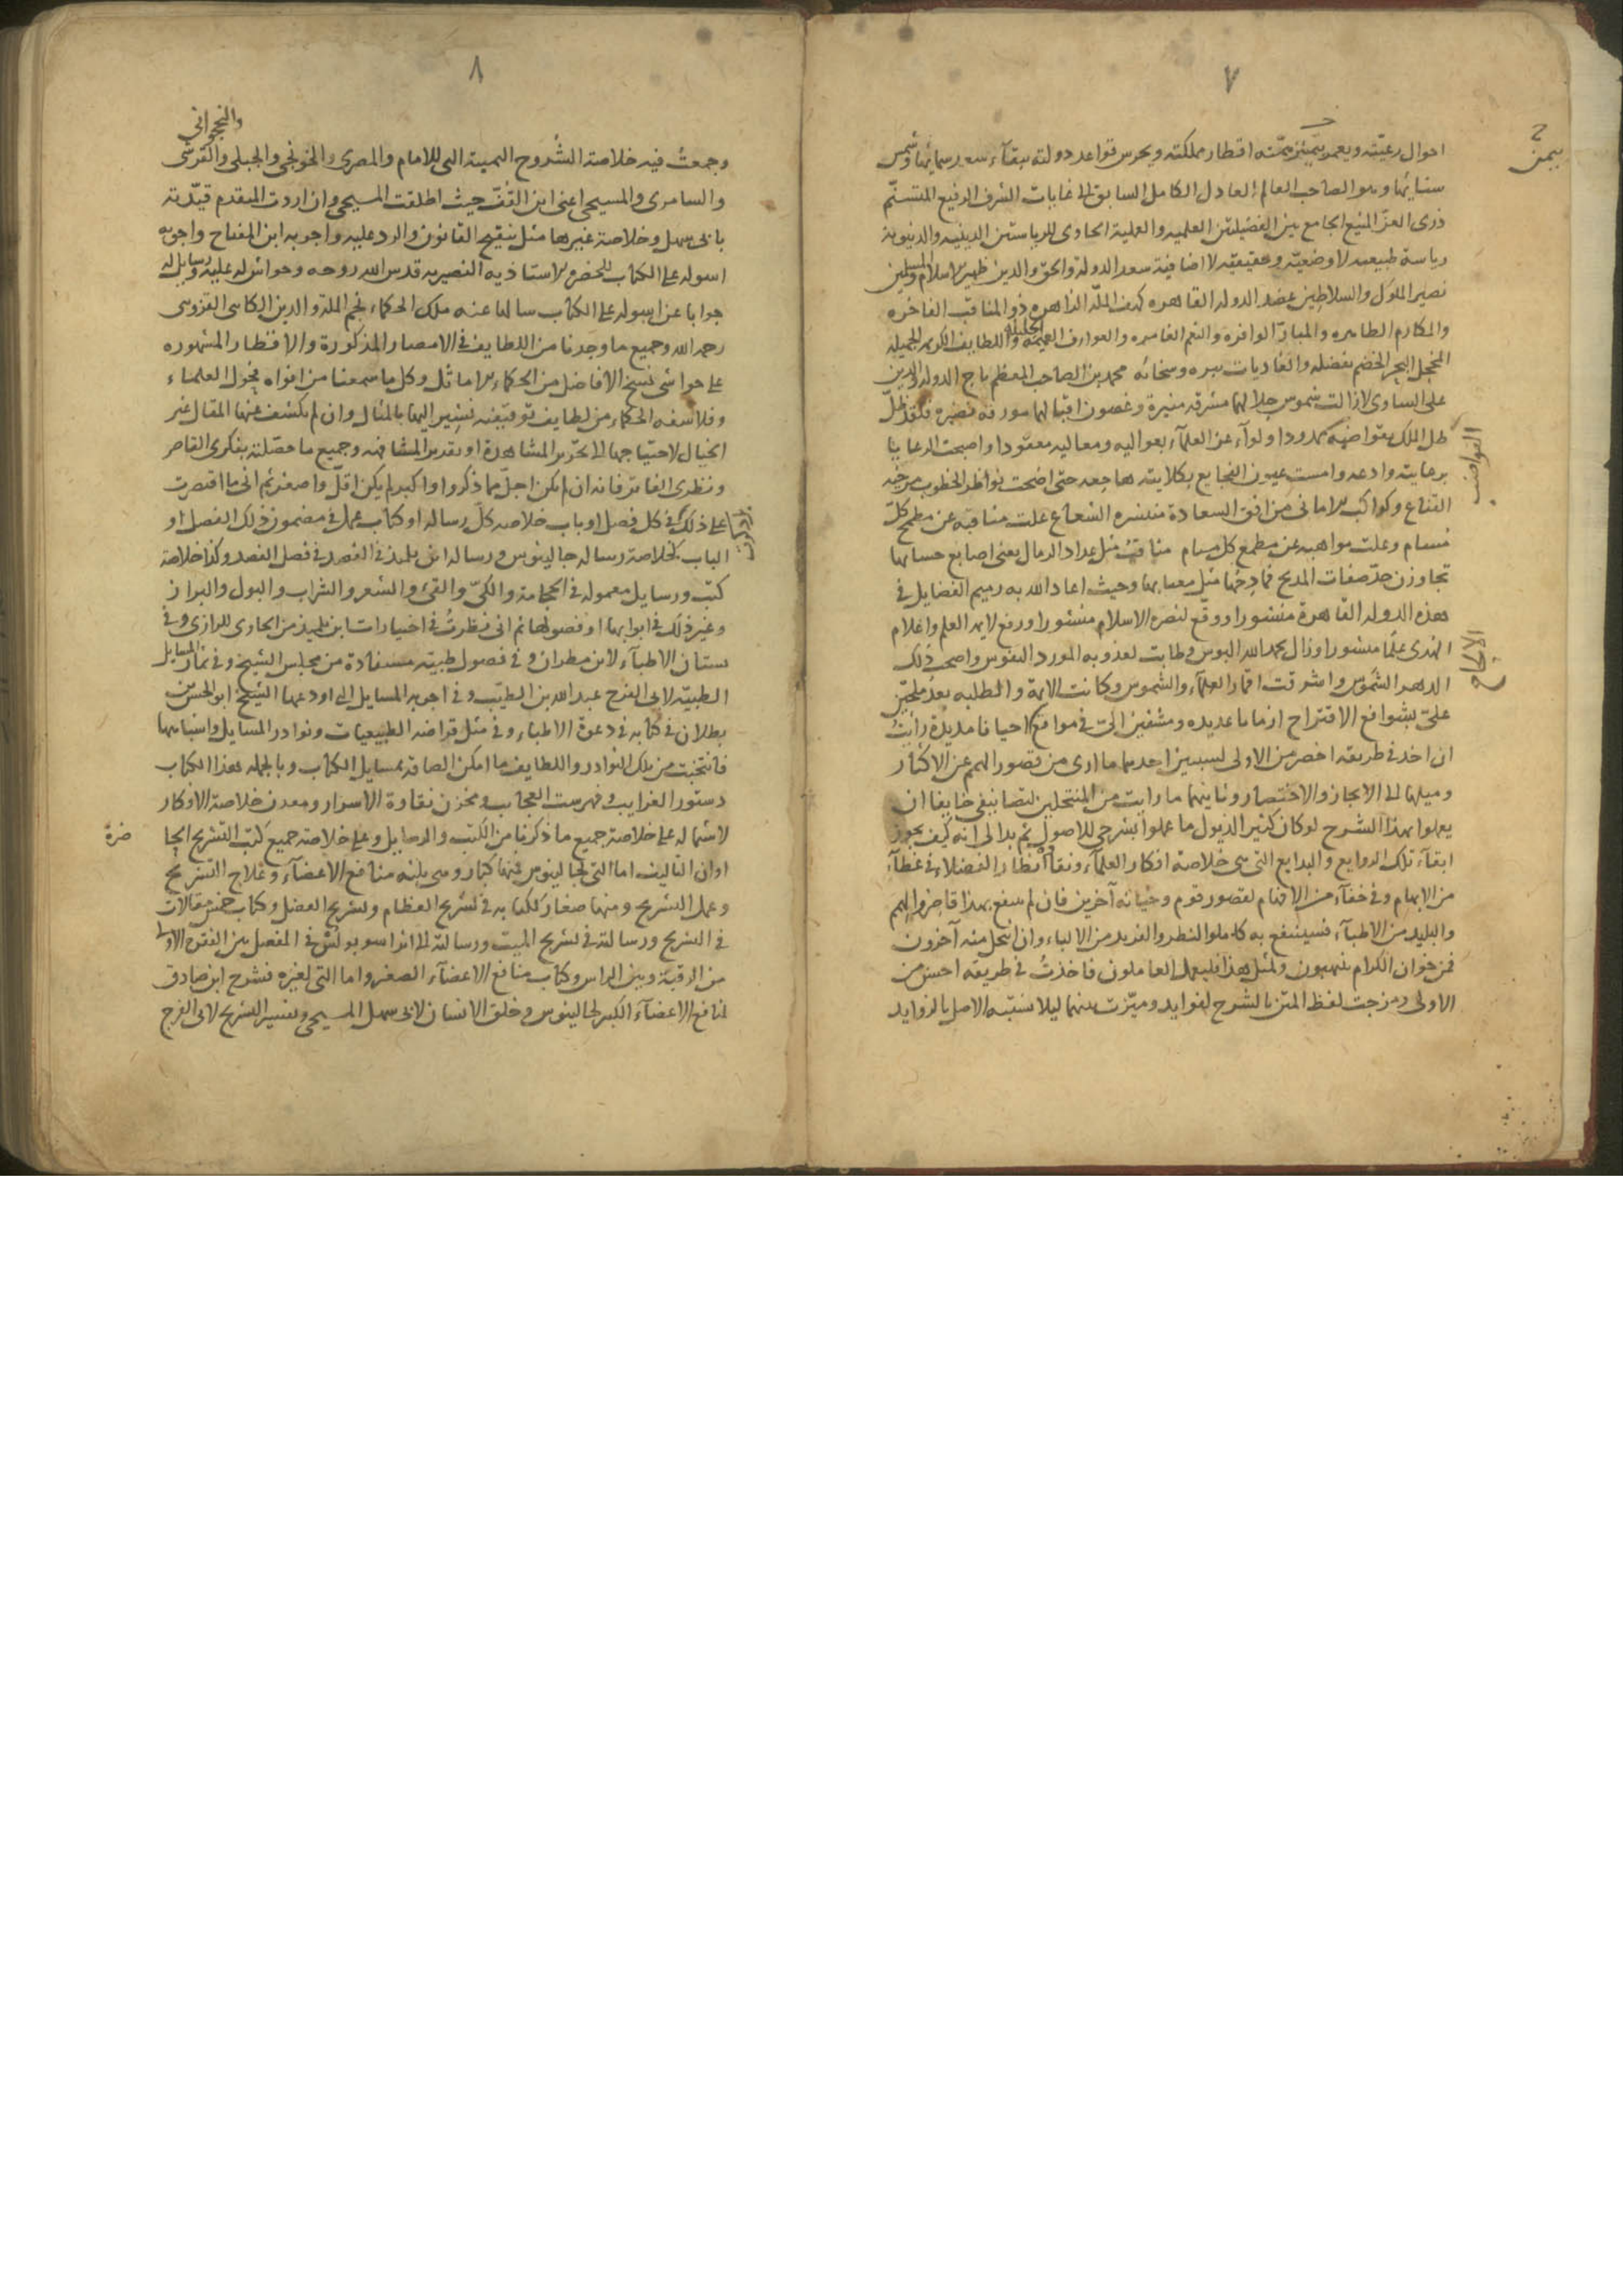 ٧
احوال رعيته ويعمر بيمن همته اقطار مملكته ويحرس قواعد دولته ببقآء سعد سمائها وشمس
سنائها وهو الصاحب العالم العادل الكامل السابق الى غايات الشرف الرفيع المتسنّم
ذرى العزّ المنيع الجامع بين الفضيلتين العلمية والعملية الحاوى للرياستين الدينية والدنيوية
رياسة طبيعية لا وضعيّة وحقيقيّة لا اضافية سعد الدولة والحق والدين ظهير الاسلام والمسلمين
نصير الملوك والسلاطين عضد الدولة القاهرة كهف الملّة الزاهرة ذو المناقب الفاخره
والمكارم الطاهره والمبارّ الوافره والنعم الغامره والعوارف العميمة الجليلة واللطايف الكريمة الجميلة
المخجل البحر الخضم بفضله والغاديات ببره وسخائه محمد بن الصاحب المعظم تاج الدولة والدين
على الساوى لا زالت شموس جلالها مشرقه منيرة وغصون اقبالها مورقه نضيره فلقد ظلّ
ظل الملك بقواضبه ممدودا ولوآء عز العلمآء بعواليه ومعاليه معقودا واصبحت الرعايا
برعايته وادعه وامست عيون الفجايع بكلايته هاجعه حتى اضحت نواظر الخطوب مرخيّه
القناع وكواكب الامانى من افق السعادة منتشره الشعاع علت مناقبه عن مطمح كلّ
مسام وعلت مواهبه عن مطمع كل مسام مناقب مثل عداد الرمال يعنى اصابع حسابها
تجاوزن حدّ صفات المديح فمادحها مثل معتابها وحيث اعاد الله به رميم الفضايل فى
هذه الدولة القاهرة منشورا ووقّع لنصره الاسلام منشورا ورفع لاية العلم واعلام
الهدى علما منشورا وزال بحمد الله البوس وطابت لعذوبه المورد النفوس واصحب ذلك
الدهر الشموس واشرقت اقمار العلمآء والشموس وكانت الايمة والطلبه بعدُ ملحّين
علىّ بشوافع الاقتراح ازمانا عديده ومشفين الىّ فى مواقع احيانا مديدة رأيتُ
ان اخذ فى طريقه اخصر من الاولى لسببين احدهما ما ارى من قصور الهمم عن الاكثار
وميلها الى الايجاز والاختصار وثانيهما ما رايت من المنتحلين لتصانيفى خايفا ان
يعملوا بهذا الشرح لو كان كثير الذيول ما عملوا بشرحى للاصول ثم بدا لى انه كيف يجوز
ابقآء تلك الروايع والبدايع التى هى خلاصة افكار العلمآء ونقاوة انظار الفضلاء فى غطآء
من الابهام وفى خفآء من الافهام لقصور قوم وخيانه آخرين فان لم ينتفع بهذا قاصروا الهمم
والبليد من الاطبآء فسينتفع به كاملوا النظر والفريد من الالباء وان انتحل منه آخرون
فمن خوان الكرام ينهبون ولمثل هذا فليعمل العاملون فاخذتُ فى طريقه احسن من
الاولى ومزجت لفظ المتن بالشرح لفوايد وميّزت بينهما ليلا يشتبه الاصل بالزوايد
بيمن
القواضب
الاقتراح
٨
والنخجوانى
وجمعتُ فيه خلاصة الشروح الثمينة التى للامام والمصرى والخونجى والجبلى والقرشى
والسامرى والمسيحى اعنى ابن القُفّ حيث اطلقت المسيحى وان اردت المتقدم قيّدته
بابى سهل وخلاصة غيرها مثل تنقيح القانون والرد عليه واجوبه ابن المفتاح واجوبه
اسوله على الكتاب للحضرة الاستاذيه النصيريه قدس الله روحه وحواش له عليه ورسايل له
جوابا عن اسوله على الكتاب سالها عنه ملك الحكماء نجم الملة والدين الكاتبى القزوينى
رحمه الله وجميع ما وجدنا من اللطايف فى الامصار المذكورة والاقطار المشهوره
على حواشى نسخ الافاضل من الحكماء الاماثل وكل ما سمعنا من افواه فحول العلماء
وفلاسفه الحكماء من لطايف توقيفيه نشير اليها بالمثال وان لم يكشف عنها المقال غير
الخيال لاحتياجها الى تحرير المشاهدة او تقدير المشافهه وجميع ما حصّلته بفكرى القاصر
ونظرى الفاتر فانه ان لم يكن اجلّ مما ذكروا واكبر لم يكن اقلّ واصغر ثم انى ما اقتصرت
على ذلك فى كل فصل او باب خلاصه كل رساله او كتاب عمل فى مضمون ذلك الفصل او
الباب كخلاصة رساله جالينوس ورساله ابن تلميذ فى الفصد فى فصل الفصد وكذا خلاصة
كتب ورسايل معموله فى الحجامة والكىّ والقئ والشعر والشراب والبول والبراز
وغير ذلك فى ابوابها او فصولها ثم انى نظرتُ فى اختيارات ابن تلميذ من الحاوى للرازى وفى
بستان الاطبآء لابن مطران وفى فصول طبيّه مستفادة من مجلس الشيخ وفى ثمار المسايل
الطبيّه لابى الفرج عبد الله بن الطيّب وفى اجوبه المسايل التى اودعها الشيخ ابو الحسن
بطلان فى كتابه فى دعوة الاطباء وفى مثل قراضه الطبيعيات ونوادر المسايل واشباهها
فانتخبت من تلك النوادر واللطايف ما امكن الصاقه بمسايل الكتاب وبالجمله هذا الكتاب
دستور الغرايب وفهرست العجايب ومخزن نقاوة الاسرار ومعدن خلاصة الافكار
لاشتماله على خلاصة جميع ما ذكرنا من الكتب والرسايل وعلى خلاصه جميع كتب التشريح الحا
ضرة
اوان التاليف اما التى لجالينوس فمنها كبار وهى ثلثه منافع الاعضآء وعلاج التشريح
وعمل التشريح ومنها صغار ككتابه فى تشريح العظام وتشريح العضل وكتاب خمس مقالات
فى التشريح ورسالته فى تشريح الميت ورسالته الى فى المفصل بين الفقرة الاولى
من الرقبة وبين الراس وكتاب منافع الاعضآء الصغير واما التى لغيره فشرح ابن صادق
لمنافع الاعضآء الكبير لجالينوس وخلق الانسان لابى سهل المسيحى وتفسير التشريح لابى الفرج